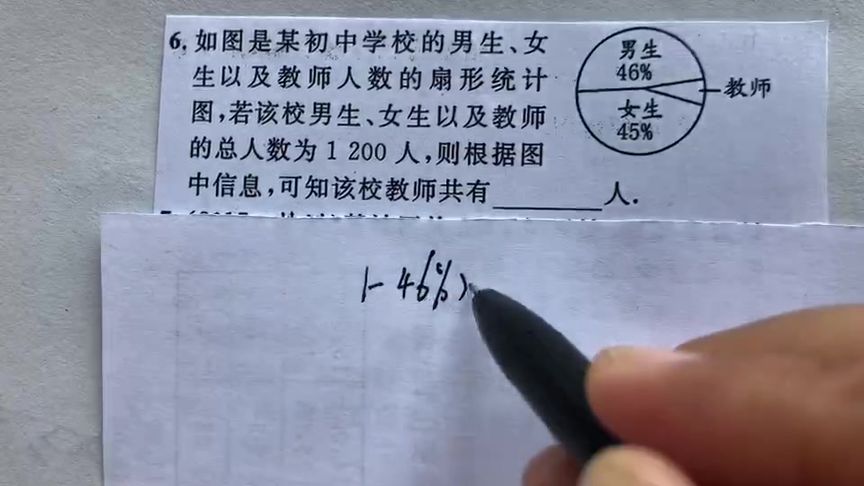 6. 如图是某初中学校的男生、女
生以及教师人数的扇形统计
图,若该校男生、女生以及教师
的总人数为 1 200 人,则根据图
中信息,可知该校教师共有________人.
男生
46%
教师
女生
45%
1- 46%